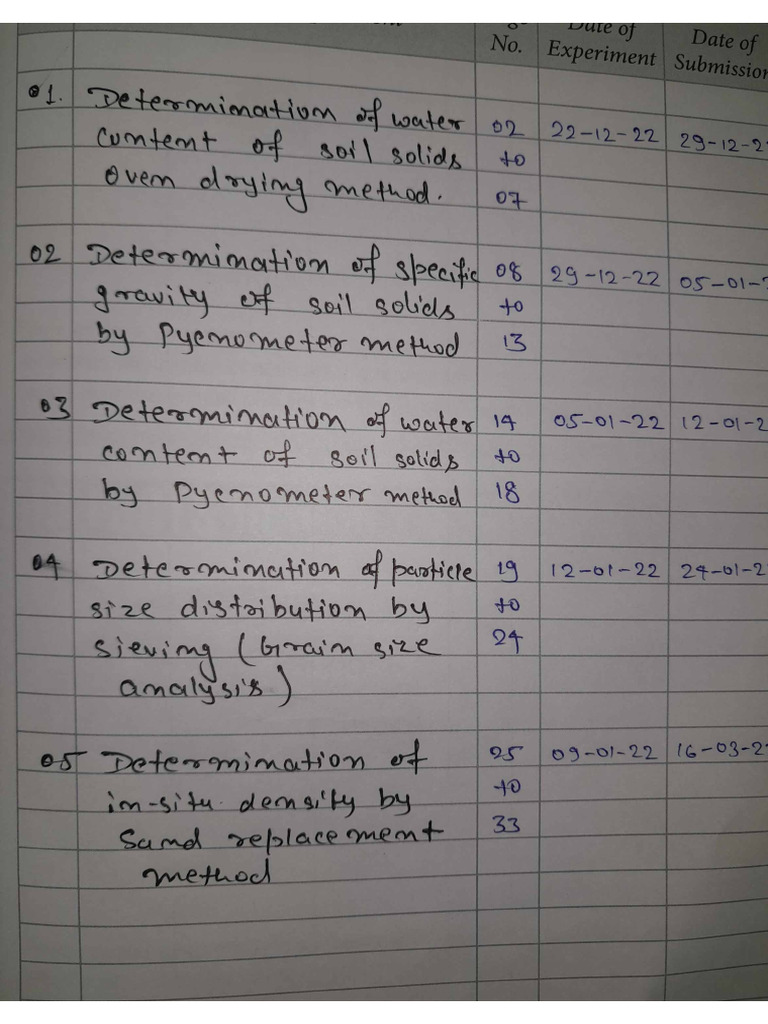 No. Date of Experiment Date of Submission
01. Determination of water 02 22-12-22 29-12-2
content of soil solids to
Oven drying method. 07
02 Determination of specific 08 29-12-22 05-01-
gravity of soil solids to
by Pycnometer method 13
03 Determination of water 14 05-01-22 12-01-2
content of soil solids to
by Pycnometer method 18
04 Determination of particle 19 12-01-22 24-01-2
size distribution by to
sieving (Grain size 24
analysis)
05 Determination of 25 09-01-22 16-03-2
in-situ density by to
Sand replacement 33
method